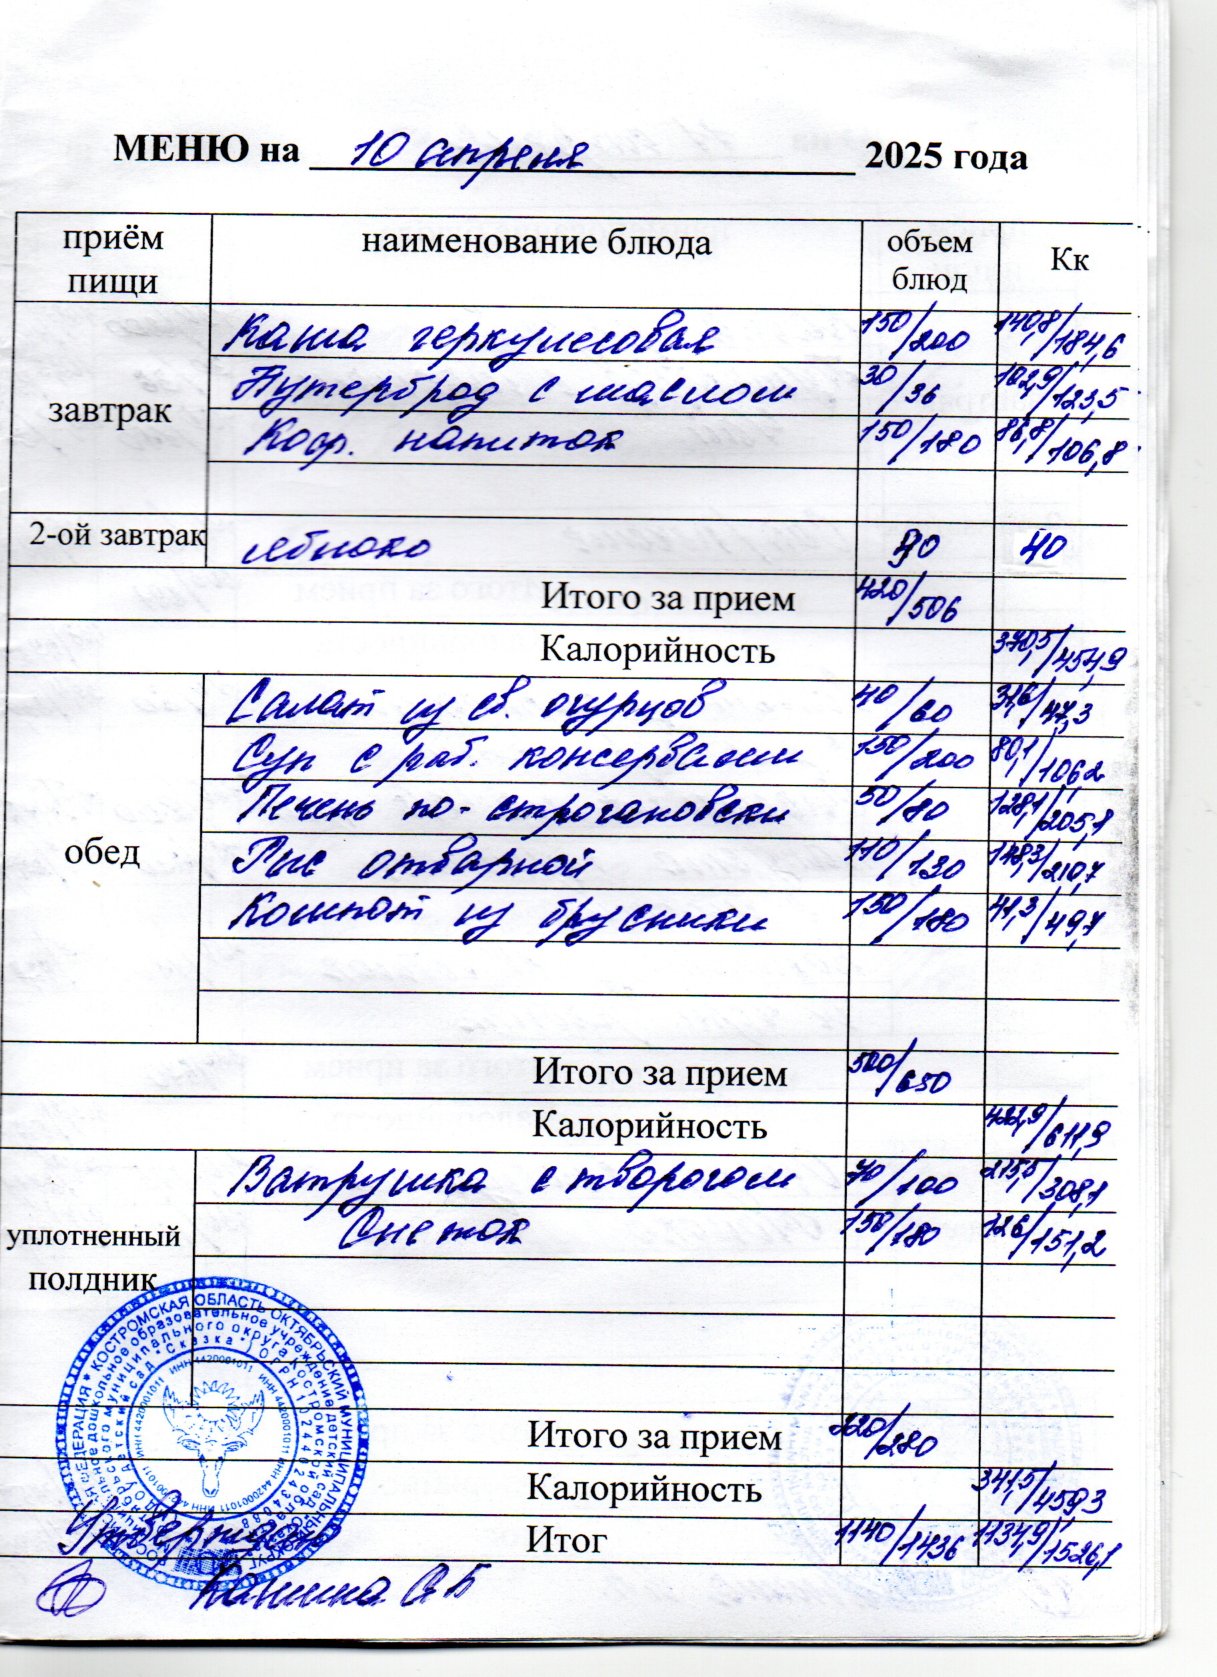 МЕНЮ на 10 апреля 2025 года
приём пищи наименование блюда объем блюд Кк
завтрак
Каша геркулесовая 150/200 140,8/184,6
Бутерброд с маслом 30/36 102,9/123,5
Коф. напиток 150/180 86,8/106,8
2-ой завтрак яблоко 90 40
Итого за прием 420/506
Калорийность 370,5/454,9
обед
Салат из св. огурцов 40/60 31,6/47,3
Суп с рыб. консервами 150/200 80,1/106,2
Печень по-строгановски 50/80 128,1/205,1
Рис отварной 110/130 148,3/210,7
Компот из брусники 150/180 41,3/49,7
Итого за прием 500/650
Калорийность 422,9/611,9
уплотненный полдник
Ватрушка с творогом 70/100 215,5/308,1
Снежок 150/180 126/151,2
Итого за прием 220/280
Калорийность 341,5/459,3
Итог 1140/1436 1134,9/1526,1
КОСТРОМСКАЯ ОБЛАСТЬ ОКТЯБРЬСКИЙ МУНИЦИПАЛЬНЫЙ ОКРУГ
дошкольное образовательное учреждение детский сад
муниципального округа Костромской области
детский сад "Сказка"
ИНН 4420001011